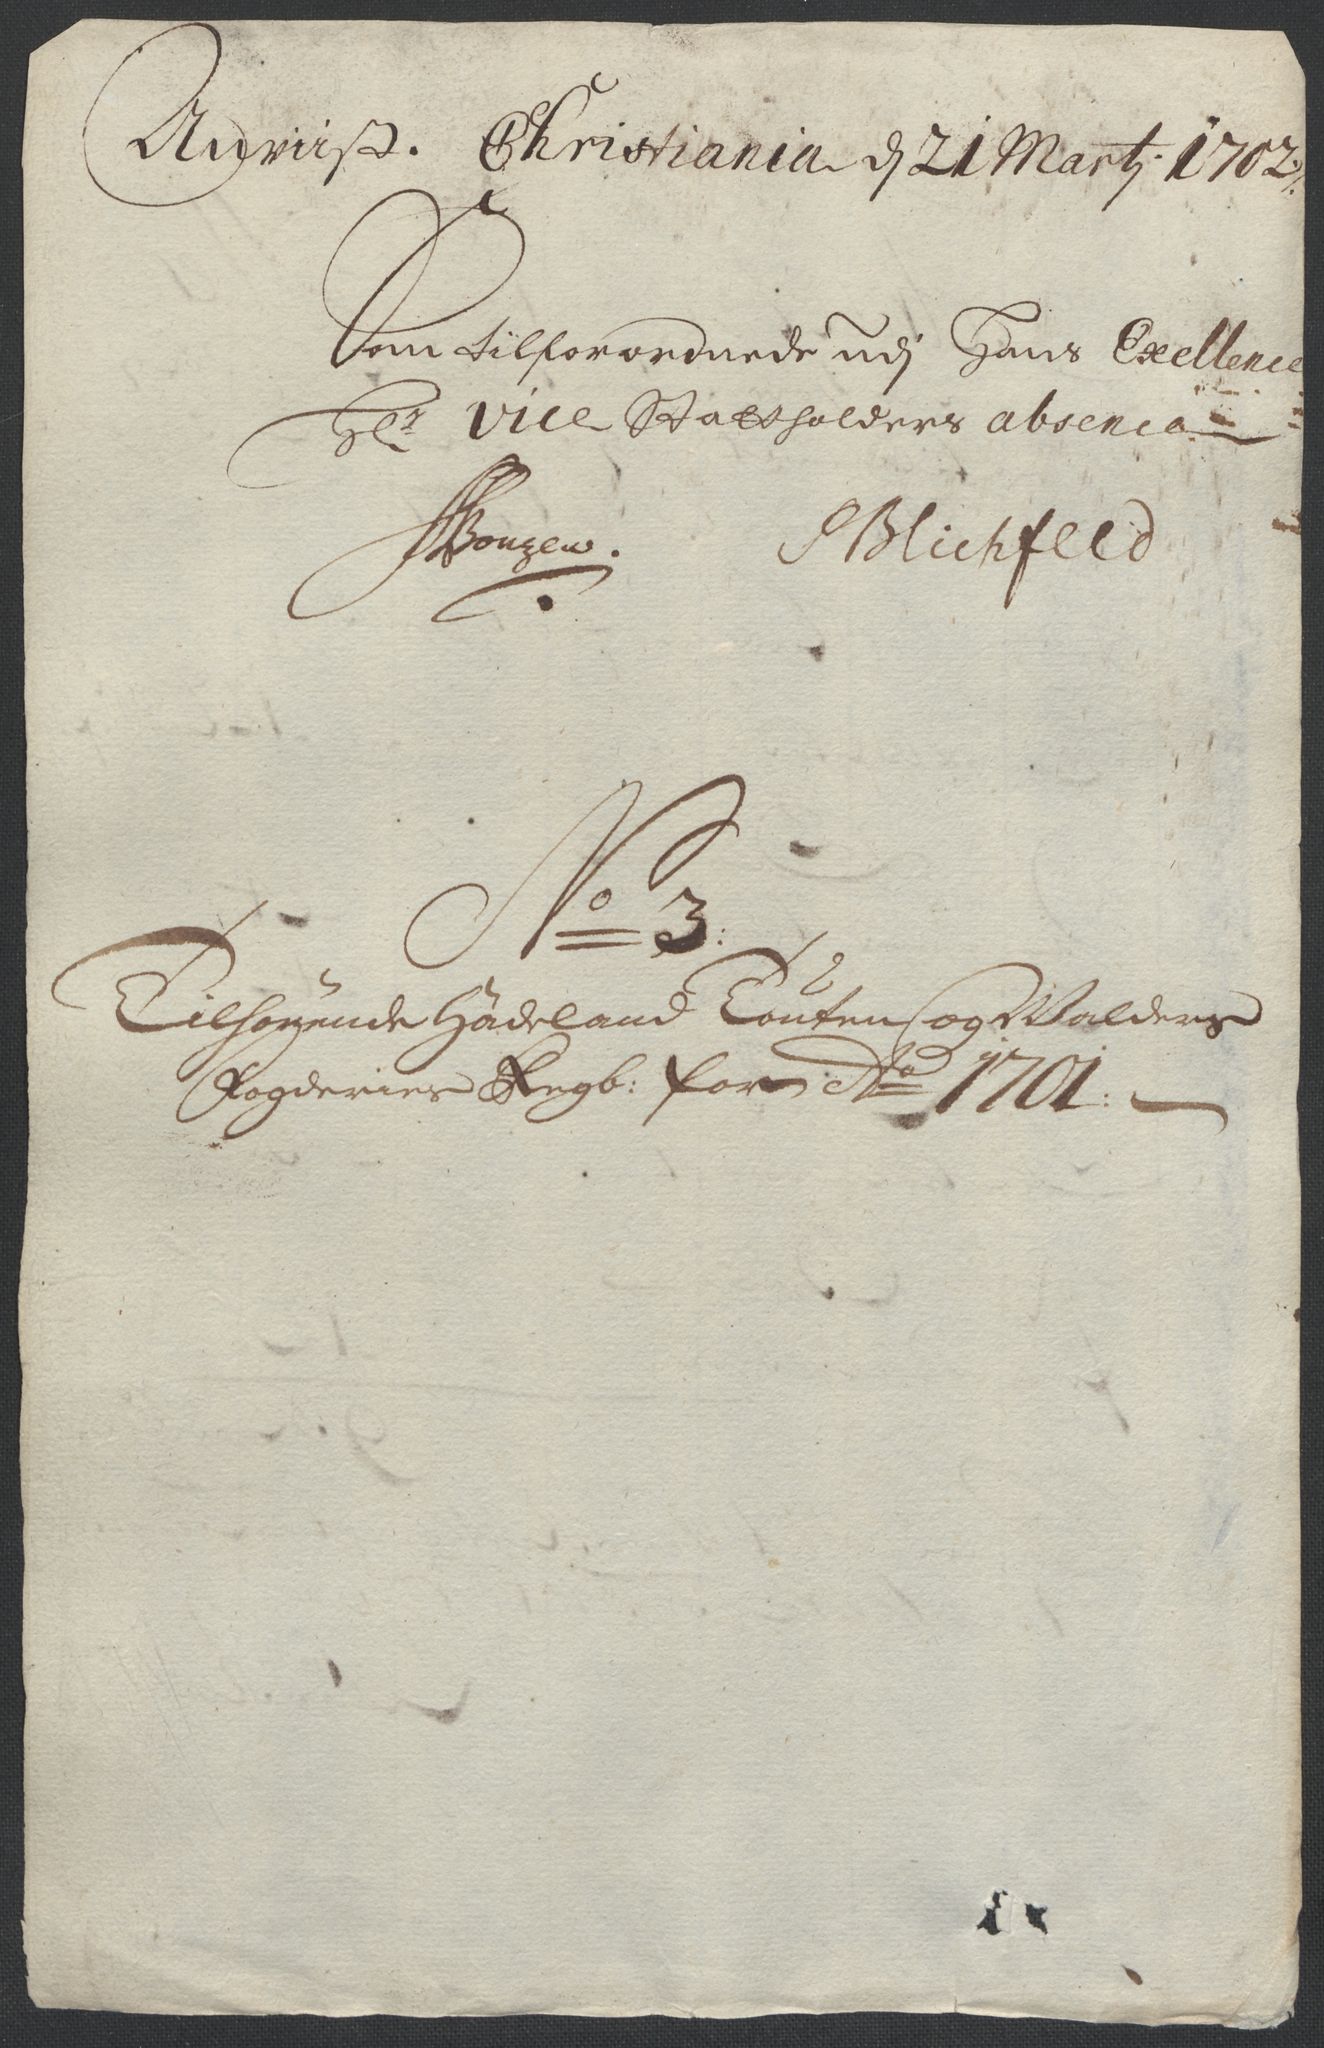 Anviist. Christiania dj 21 Martj: 1702
Som tilforordnede udj Hans Exellence
Hr: Vice Statholders absence
Blichfeld
No 3:
Tilhørende Hadeland Touten og Walders
Fogderies Regb: for Ao 1701: